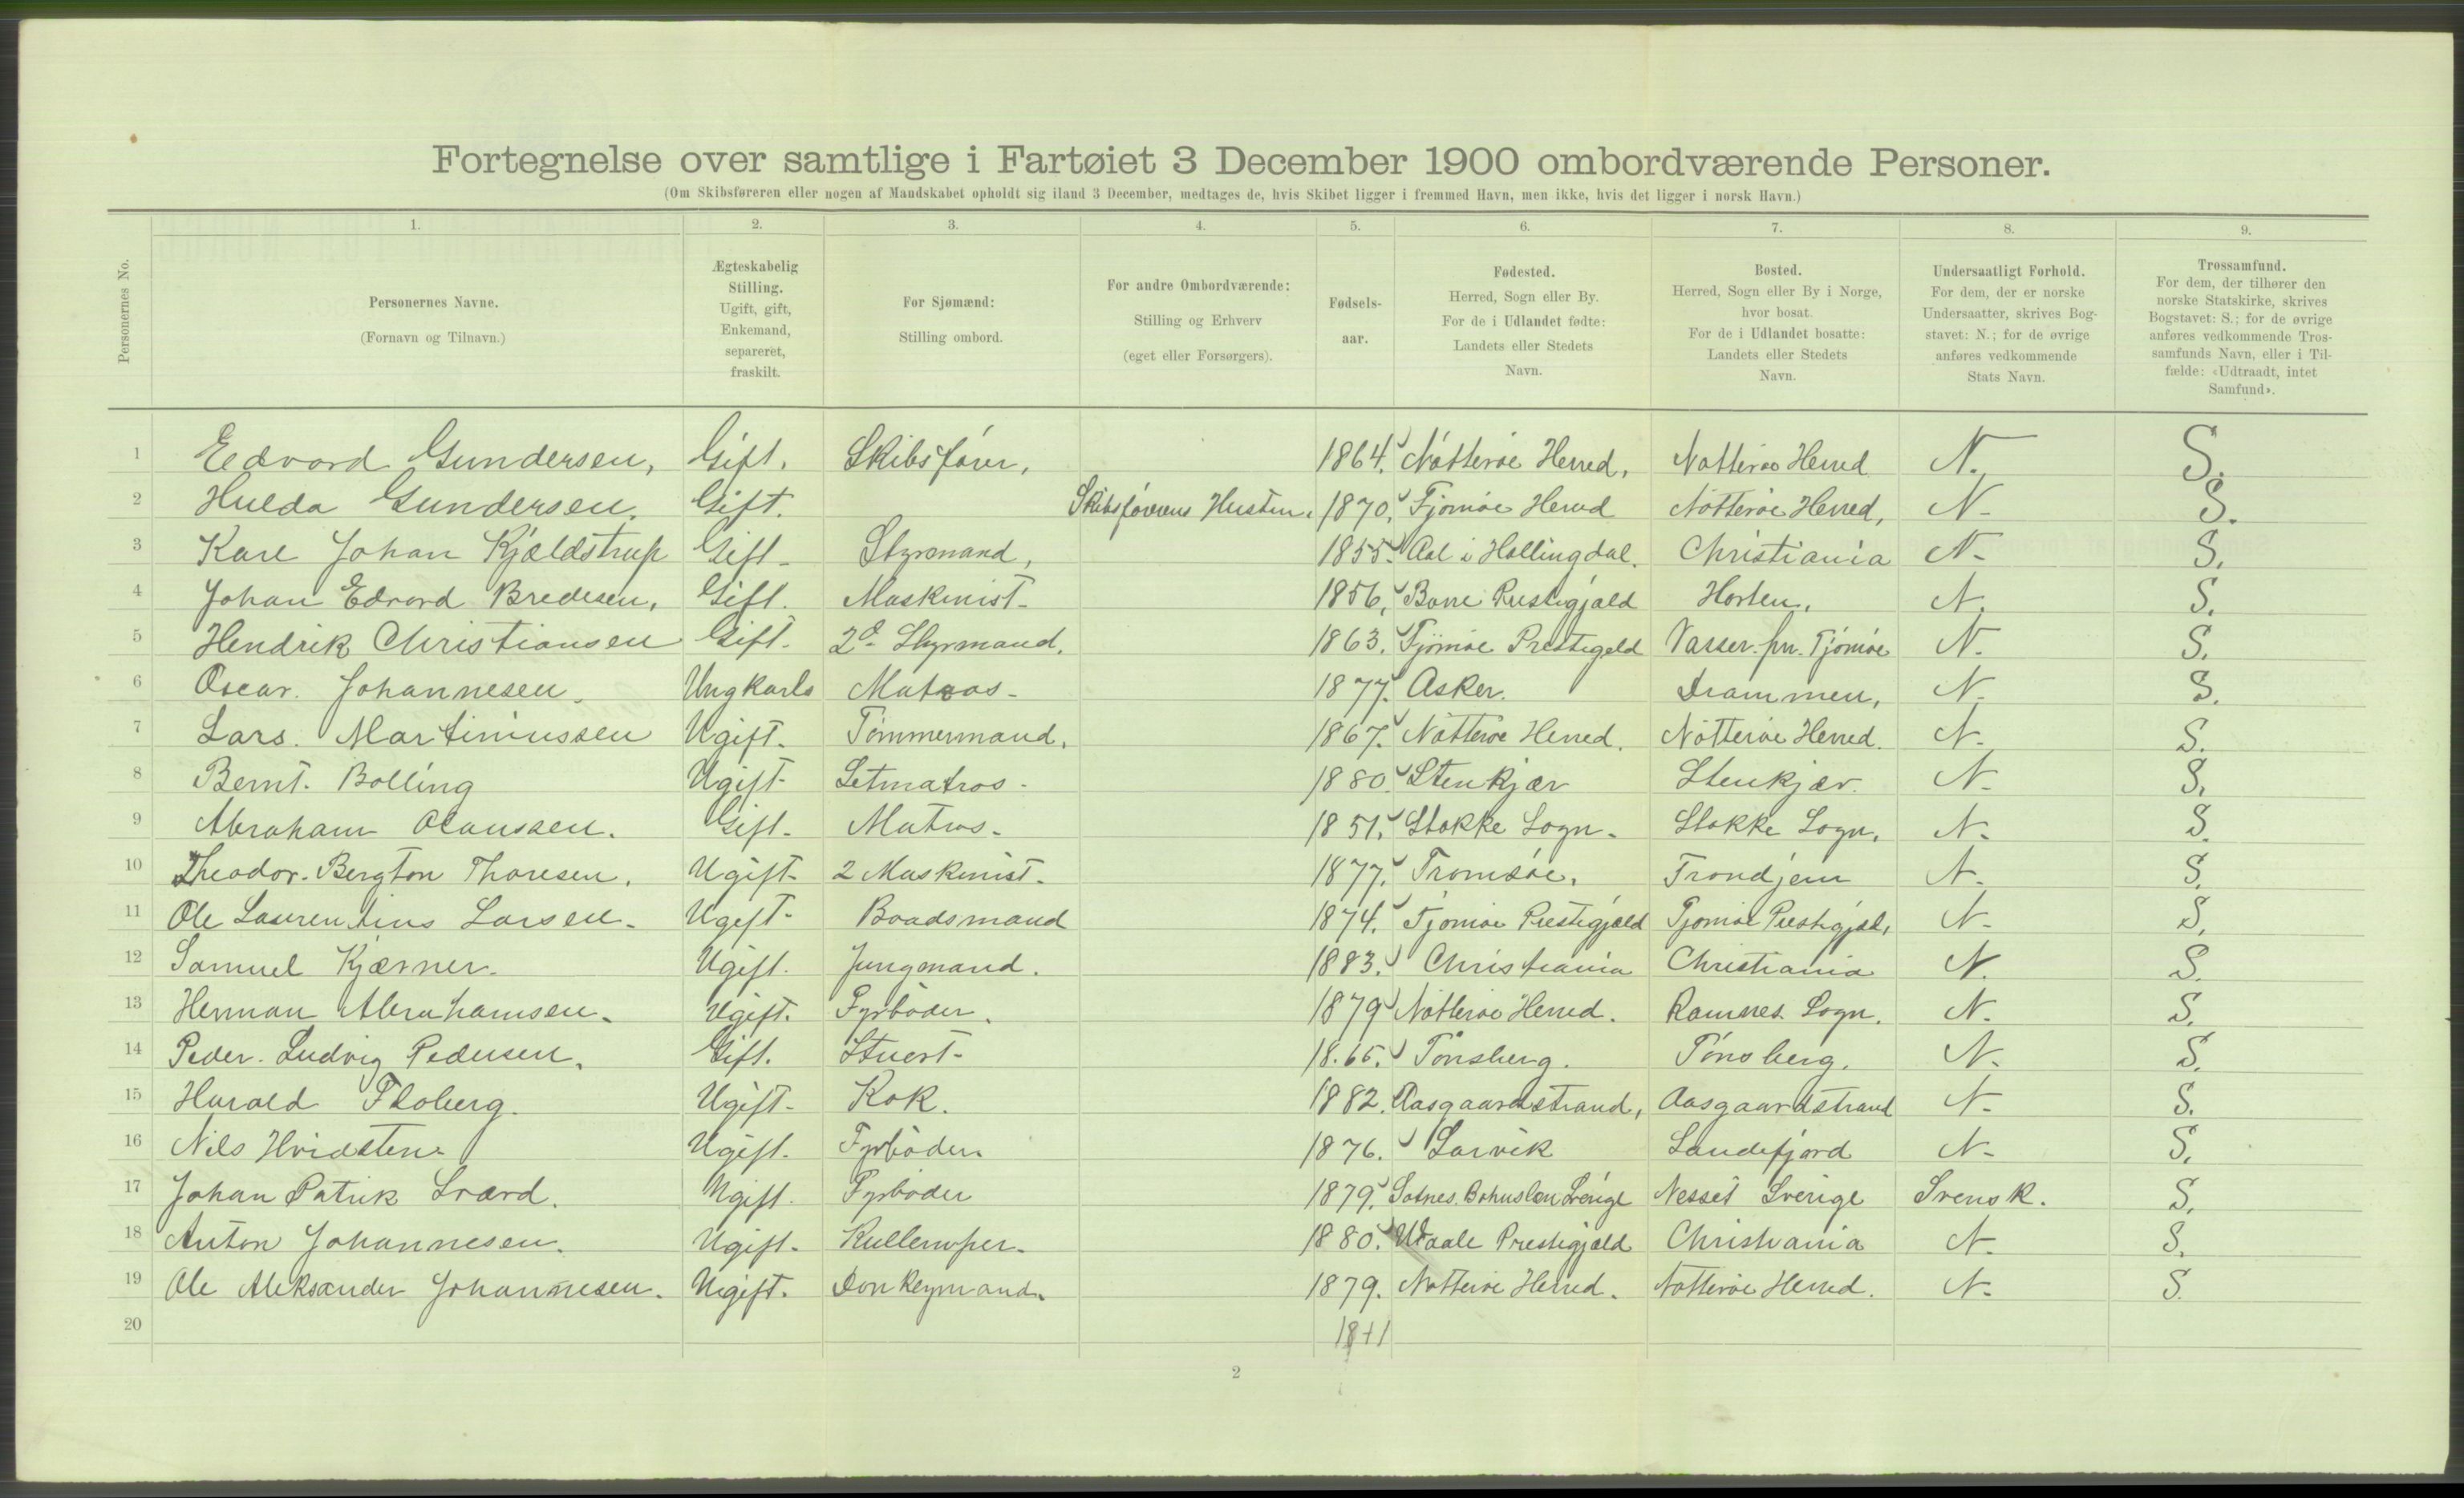 Fortegnelse over samtlige i Fartøiet 3 December 1900 ombordværende Personer.
(Om Skibsføreren eller nogen af Mandskabet opholdt sig iland 3 December, medtages de, hvis Skibet ligger i fremmed Havn, men ikke, hvis det ligger i norsk Havn.)
1. 2. 3. 4. 5. 6. 7. 8. 9.
Personernes No.
Personernes Navne.
(Fornavn og Tilnavn.)
Ægteskabelig
Stilling.
Ugift, gift,
Enkemand,
separeret,
fraskilt.
For Sjømænd:
Stilling ombord.
For andre Ombordværende:
Stilling og Erhverv
(eget eller Forsørgers).
Fødsels-
aar.
Fødested.
Herred, Sogn eller By.
For de i Udlandet fødte:
Landets eller Stedets
Navn.
Bosted.
Herred, Sogn eller By i Norge,
hvor bosat.
For de i Udlandet bosatte:
Landets eller Stedets
Navn.
Undersaatligt Forhold.
For dem, der er norske
Undersaatter, skrives Bog-
stavet: N.; for de øvrige
anføres vedkommende
Stats Navn.
Trossamfund.
For dem, der tilhører den
norske Statskirke, skrives
Bogstavet: S.; for de øvrige
anføres vedkommende Tros-
samfunds Navn, eller i Til-
fælde: «Udtraadt, intet
Samfund».
1 Edvard Gundersen, Gift. Skibsfører, 1864. Nøtterøe Herred, Nøtterøe Herred N. S.
2 Hulda Gundersen. Gift. Skibsførerens Hustru. 1870. Tjømøe Herred Nøtterøe Herred, N- S.
3 Karl Johan Kjældstrup Gift- Styrmand, 1855. Aal i Hallingdal. Christiania N- S.
4 Johan Edvard Bredesen, Gift. Maskinist- 1856, Borre Prestegjæld Horten, N. S.
5 Hendrik Christiansen Gift. 2d Styrmand. 1863. Tjømøe Prestegeld Vasser. pr. Tjømøe N. S.
6 Oscar. Johannesen. Ungkarls Matros- 1877. Asker. Drammen, N. S.
7 Lars. Martiniussen Ugift- Tømmermand. 1867. Nøtterøe Herred. Nøtterøe Herred. N- S.
8 Bernt. Bolling Ugift- Letmatros- 1880. Stenkjær Stenkjær. N- S.
9 Abraham Olaussen. Gift- Matros- 1851. Stokke Sogn- Stokke Sogn, N- S.
10 Theodor. Bergton Thoresen. Ugift- 2 Maskinist- 1877. Tromsøe, Trondjem N- S.
11 Ole Laurentius Larsen- Ugift- Baadsmand 1874. Tjømøe Prestegjæld Tjømøe Prestegjæl, N- S.
12 Samuel Kjærner- Ugift. Jungmand. 1883. Christiania Christiania N. S.
13 Herman Abrahamsen- Ugift. Fyrbøder. 1879 Nøtterøe Herred. Ramnes Sogn. N- S.
14 Peder. Ludvig Pedersen. Gift. Stuert- 18.65. Tønsberg. Tønsberg. N- S.
15 Harald Floberg. Ugift- Kok. 1882. Aasgaardstrand, Aasgaardstrand N- S.
16 Nils Hvidsten- Ugift. Fyrbøder. 1876. Larvik Sandefjord N- S.
17 Johan Patrik Sværd. Ugift. Fyrbøder 1879. Bohuslen Sverige Sverige Svensk. S.
18 Anton Johannesen. Ugift- Kullemper- 1880. Vaale Prestegjæld Christiania N- S.
19 Ole Aleksander Johannesen. Ugift. Donkeymand. 1879. Nøtterøe Herred. Nøtterøe Herred. N- S.
20 18+1
2